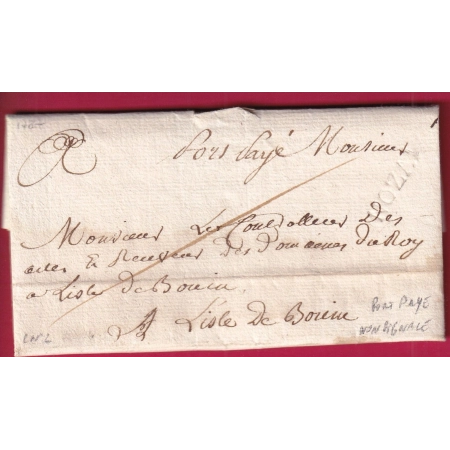 A Port Payé Monsieur
Monsieur Le Controlleur Des
actes & Receveur Des Domaines du Roy
a Lisle de Bouin
A Lisle de Bouin
PORT PAYE
NON SIGNALE